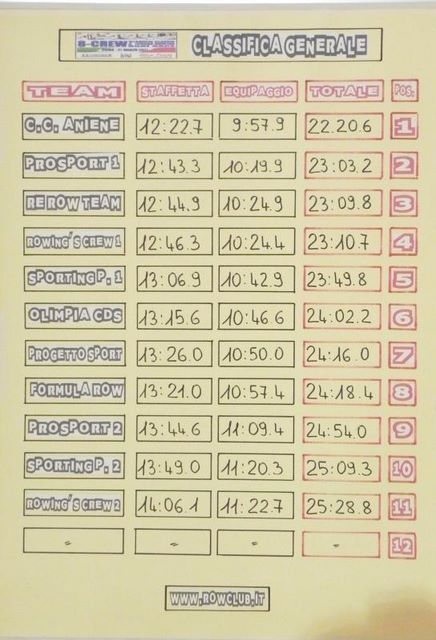 8-CREW
CLASSIFICA GENERALE
TEAM STAFFETTA EQUIPAGGIO TOTALE POS.
C.C. ANIENE 12:22.7 9:57.9 22.20.6 1
PROSPORT 1 12:43.3 10:19.9 23:03.2 2
RE ROW TEAM 12:44.9 10:24.9 23:09.8 3
ROWING'S CREW 1 12:46.3 10:24.4 23:10.7 4
SPORTING P. 1 13:06.9 10:42.9 23:49.8 5
OLIMPIA CDS 13:15.6 10:46.6 24:02.2 6
PROGETTO SPORT 13:26.0 10:50.0 24:16.0 7
FORMULA ROW 13:21.0 10:57.4 24:18.4 8
PROSPORT 2 13:44.6 11:09.4 24:54.0 9
SPORTING P. 2 13:49.0 11:20.3 25:09.3 10
ROWING'S CREW 2 14:06.1 11:22.7 25:28.8 11
- - - - 12
WWW.ROWCLUB.IT